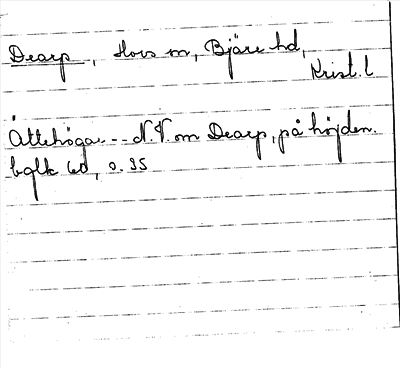 Dearp, Hovs sn, Bjäre hd,
Krist. l
Åttehögar -- N.V. om Dearp, på höjden.
bglk 60, s. 35